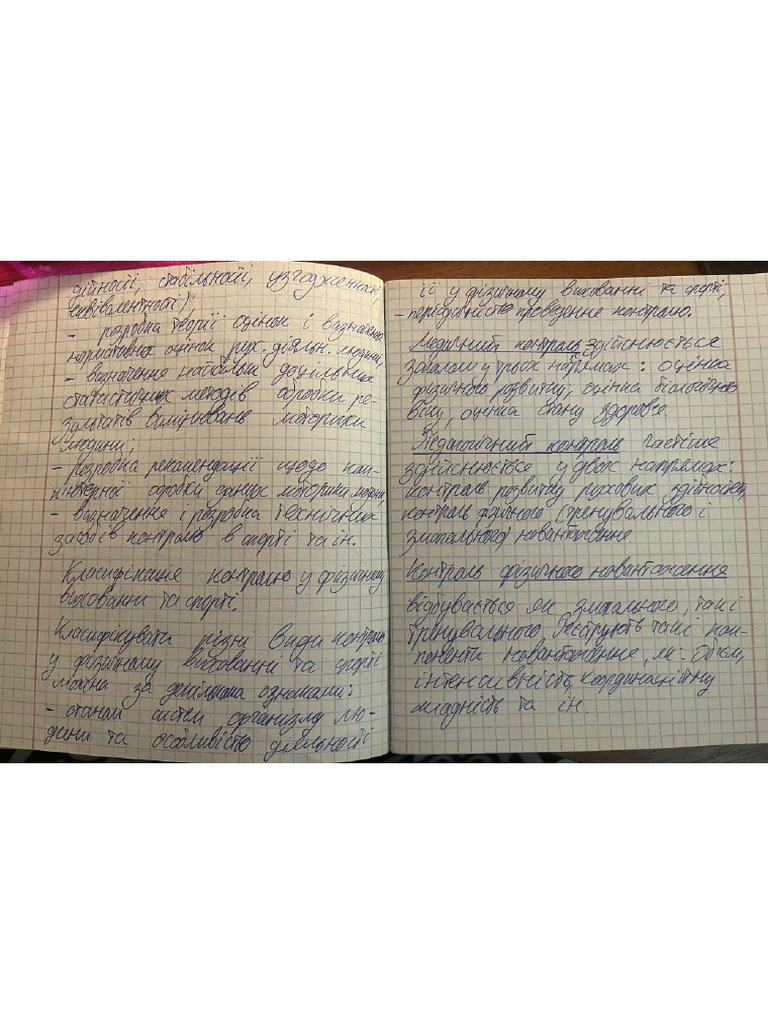 дійності, стабільності, узгодженності,
еквівалентності);
- розробка теорії оцінок і визначення
нормативно оцінок рух. діяльн. людини;
- визначення найбільш доцільних
статистичних методів обробки ре-
зультатів вимірювань моторики
людини;
- розробка рекомендації щодо ком-
п'ютерної обробки даних моторики людини;
- визначення і розробка технічних
засобів контролю в спорті та ін.
Класифікація контролю у фізичному
вихованні та спорті.
Класифікувати різні види контролю
у фізичному вихованні та спорті
можна за декількома ознаками:
- станом систем організму лю-
дини та особливістю діяльності
її у фізичному вихованні та спорті,
- періодичністю проведення контролю.
Медичний контроль здійснюється
загалом у трьох напрямах: оцінка
фізичного розвитку, оцінка біологічного
віку, оцінка стану здоров'я.
Педагогічний контроль частіше
здійснюється у двох напрямах:
контроль розвитку рухових здібностей,
контроль фізичного (тренувального і
змагального) навантаження
Контроль фізичного навантаження
відбувається як змагального, так і
тренувального. Реєструють такі ком-
поненти навантаження, як: об'єм,
інтенсивність, координаційну
складність та ін.